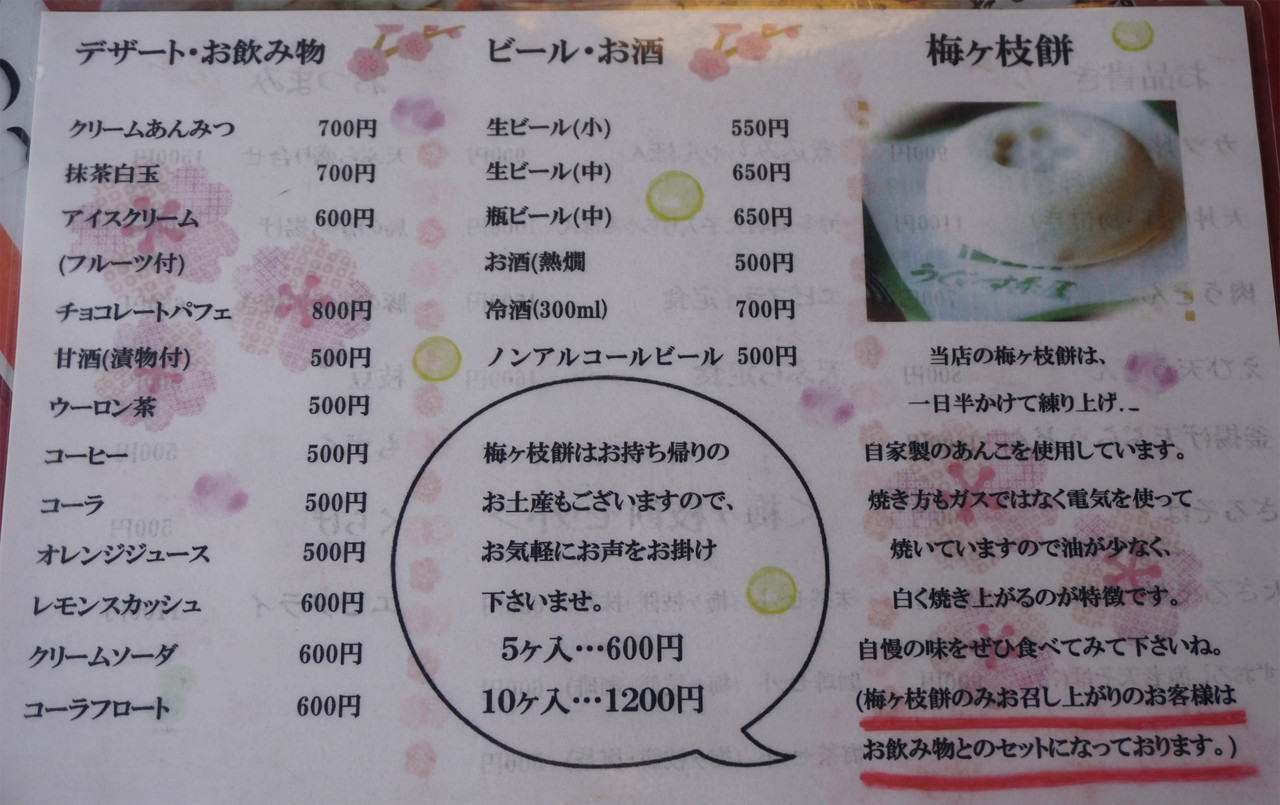 デザート・お飲み物
クリームあんみつ 700円
抹茶白玉 700円
アイスクリーム 600円
(フルーツ付)
チョコレートパフェ 800円
甘酒(漬物付) 500円
ウーロン茶 500円
コーヒー 500円
コーラ 500円
オレンジジュース 500円
レモンスカッシュ 600円
クリームソーダ 600円
コーラフロート 600円
ビール・お酒
生ビール(小) 550円
生ビール(中) 650円
瓶ビール(中) 650円
お酒(熱燗 500円
冷酒(300ml) 700円
ノンアルコールビール 500円
梅ヶ枝餅はお持ち帰りの
お土産もございますので、
お気軽にお声をお掛け
下さいませ。
5ヶ入…600円
10ヶ入…1200円
梅ヶ枝餅
当店の梅ヶ枝餅は、
一日半かけて練り上げ、
自家製のあんこを使用しています。
焼き方もガスではなく電気を使って
焼いていますので油が少なく、
白く焼き上がるのが特徴です。
自慢の味をぜひ食べてみて下さいね。
(梅ヶ枝餅のみお召し上がりのお客様は
お飲み物とのセットになっております。)